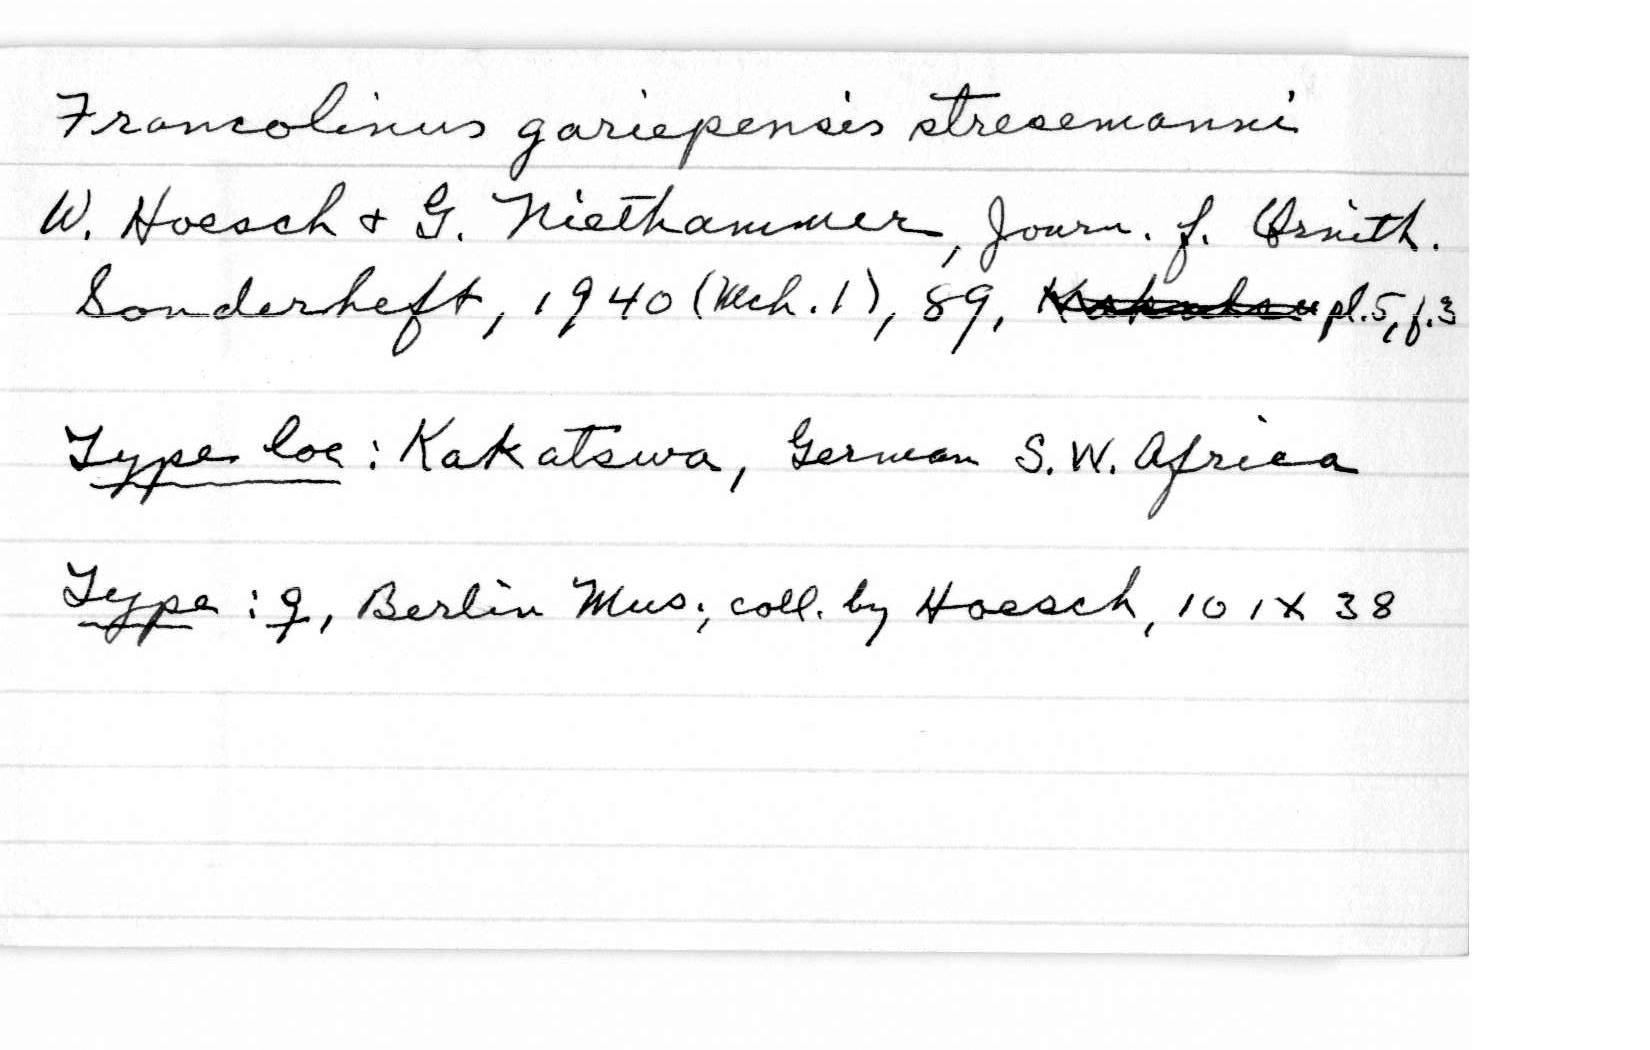 Francolinus gariepensis stresemanni
W. Hoesch & G. Niethammer, Journ. f. Ornith.
Sonderheft, 1940 (Mch. 1), 89, pl. 5, f. 3
Type loc: Kakatswa, German S.W. Africa
Type: ♀, Berlin Mus; coll. by Hoesch, 10 IX 38